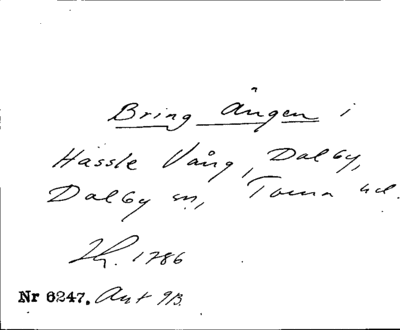 Bring Ängen i
Hässle Vång, Dalby,
Dalby sn, Torna hd.
1786
Nr 6247. Akt 913.